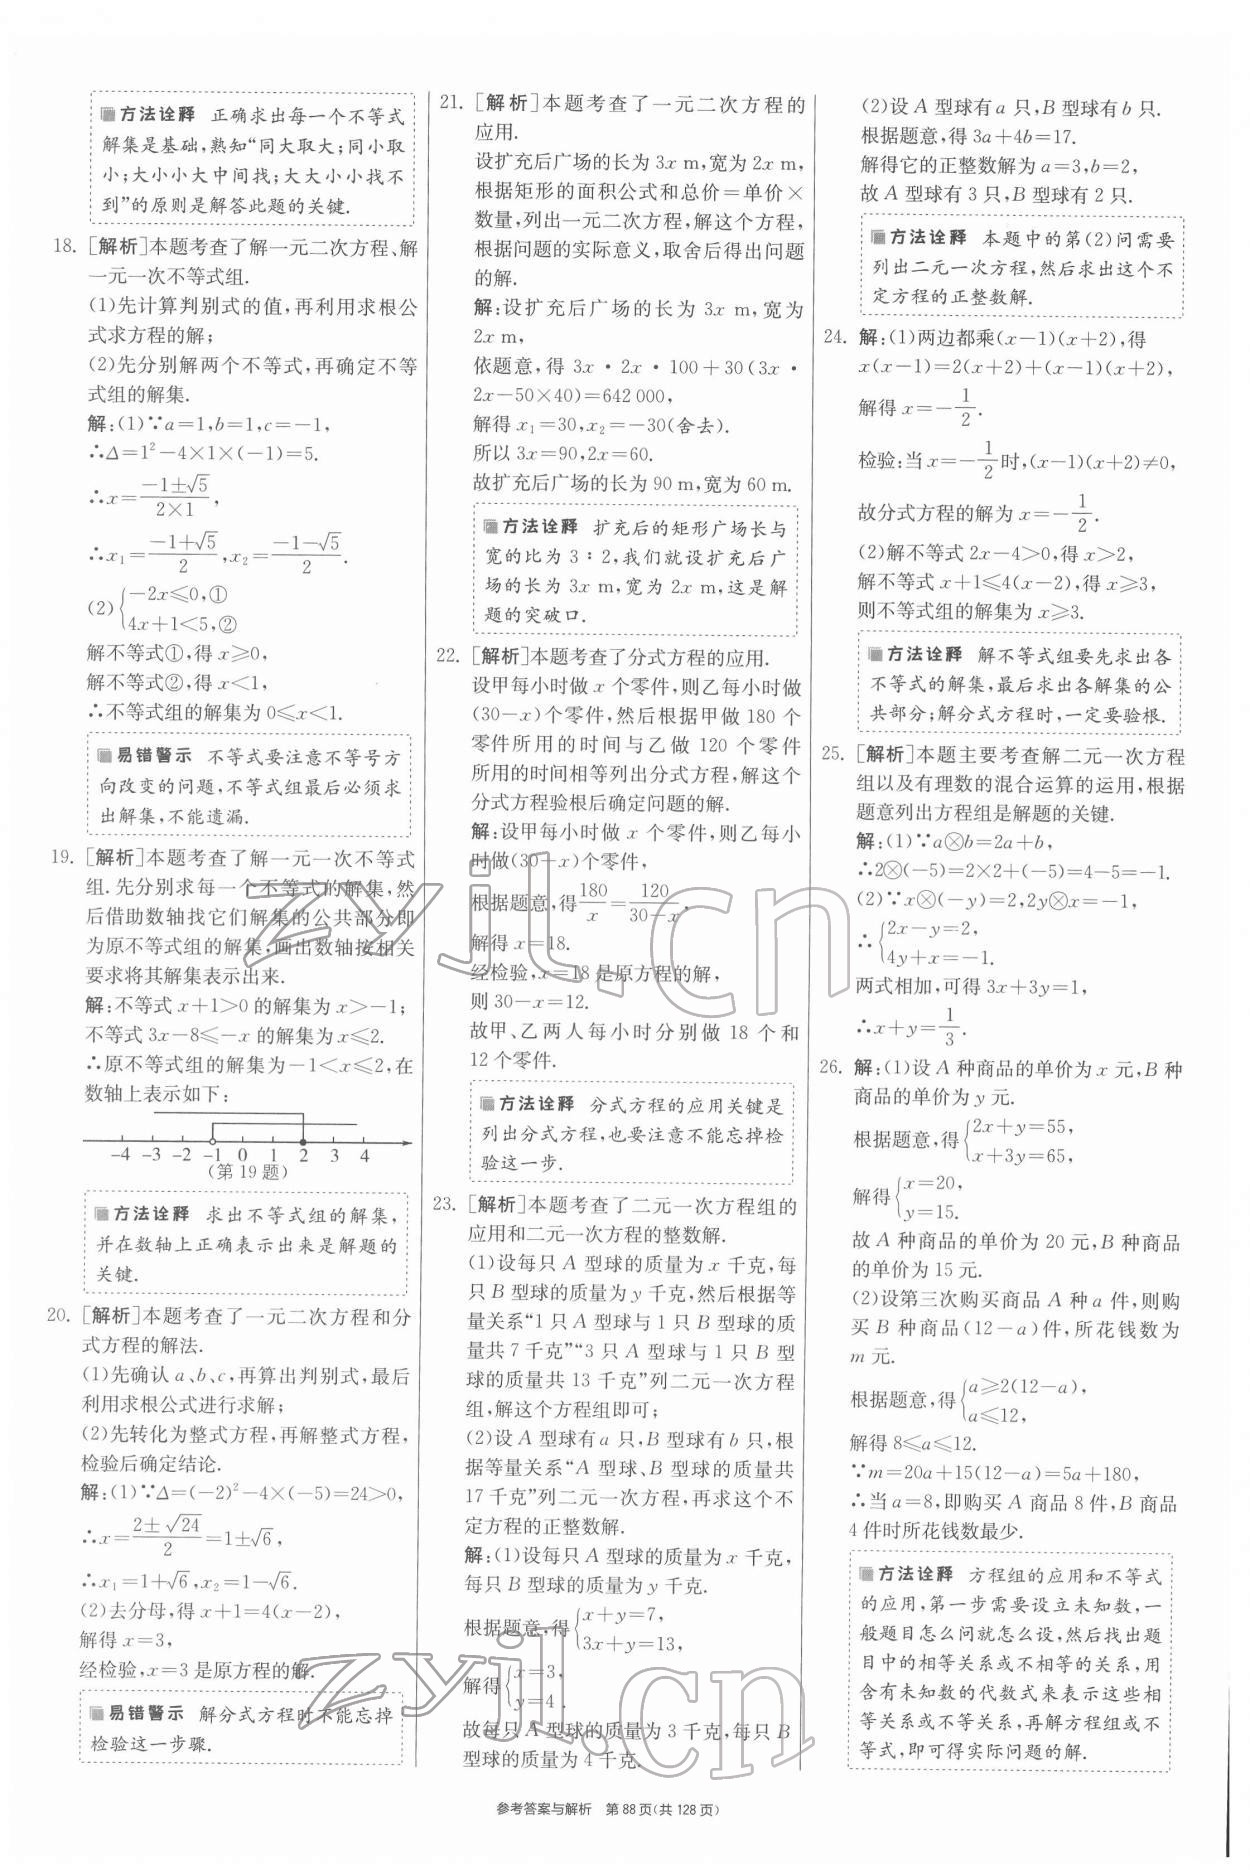 方法诠释 正确求出每一个不等式
解集是基础,熟知“同大取大;同小取
小;大小小大中间找;大大小小找不
到”的原则是解答此题的关键.
18. [解析]本题考查了解一元二次方程、解
一元一次不等式组.
(1)先计算判别式的值,再利用求根公
式求方程的解;
(2)先分别解两个不等式,再确定不等
式组的解集.
解:(1)∵a=1,b=1,c=-1,
∴Δ=1²-4×1×(-1)=5.
∴x=(-1±√5)/(2×1),
∴x₁=(-1+√5)/2,x₂=(-1-√5)/2.
(2){-2x≤0,①
4x+1<5,②
解不等式①,得x≥0,
解不等式②,得x<1,
∴不等式组的解集为0≤x<1.
易错警示 不等式要注意不等号方
向改变的问题,不等式组最后必须求
出解集,不能遗漏.
19. [解析]本题考查了解一元一次不等式
组.先分别求每一个不等式的解集,然
后借助数轴找它们解集的公共部分即
为原不等式组的解集,画出数轴按相关
要求将其解集表示出来.
解:不等式x+1>0的解集为x>-1;
不等式3x-8≤-x的解集为x≤2.
∴原不等式组的解集为-1<x≤2,在
数轴上表示如下:
-4 -3 -2 -1 0 1 2 3 4
(第19题)
方法诠释 求出不等式组的解集,
并在数轴上正确表示出来是解题的
关键.
20. [解析]本题考查了一元二次方程和分
式方程的解法.
(1)先确认a、b、c,再算出判别式,最后
利用求根公式进行求解;
(2)先转化为整式方程,再解整式方程,
检验后确定结论.
解:(1)∵Δ=(-2)²-4×(-5)=24>0,
∴x=(2±√24)/2=1±√6,
∴x₁=1+√6,x₂=1-√6.
(2)去分母,得x+1=4(x-2),
解得x=3,
经检验,x=3是原方程的解.
易错警示 解分式方程时不能忘掉
检验这一步骤.
21. [解析]本题考查了一元二次方程的
应用.
设扩充后广场的长为3x m,宽为2x m,
根据矩形的面积公式和总价=单价×
数量,列出一元二次方程,解这个方程,
根据问题的实际意义,取舍后得出问题
的解.
解:设扩充后广场的长为3x m,宽为
2x m,
依题意,得3x·2x·100+30(3x·
2x-50×40)=642 000,
解得x₁=30,x₂=-30(舍去).
所以3x=90,2x=60.
故扩充后广场的长为90 m,宽为60 m.
方法诠释 扩充后的矩形广场长与
宽的比为3∶2,我们就设扩充后广
场的长为3x m,宽为2x m,这是解
题的突破口.
22. [解析]本题考查了分式方程的应用.
设甲每小时做x个零件,则乙每小时做
(30-x)个零件,然后根据甲做180个
零件所用的时间与乙做120个零件
所用的时间相等列出分式方程,解这个
分式方程验根后确定问题的解.
解:设甲每小时做x个零件,则乙每小
时做(30-x)个零件,
根据题意,得180/x=120/(30-x),
解得x=18.
经检验,x=18是原方程的解,
则30-x=12.
故甲、乙两人每小时分别做18个和
12个零件.
方法诠释 分式方程的应用关键是
列出分式方程,也要注意不能忘掉检
验这一步.
23. [解析]本题考查了二元一次方程组的
应用和二元一次方程的整数解.
(1)设每只A型球的质量为x千克,每
只B型球的质量为y千克,然后根据等
量关系“1只A型球与1只B型球的质
量共7千克”“3只A型球与1只B型
球的质量共13千克”列二元一次方程
组,解这个方程组即可;
(2)设A型球有a只,B型球有b只,根
据等量关系“A型球、B型球的质量共
17千克”列二元一次方程,再求这个不
定方程的正整数解.
解:(1)设每只A型球的质量为x千克,
每只B型球的质量为y千克.
根据题意,得{x+y=7,
3x+y=13,
解得{x=3,
y=4.
故每只A型球的质量为3千克,每只B
型球的质量为4千克.
(2)设A型球有a只,B型球有b只.
根据题意,得3a+4b=17.
解得它的正整数解为a=3,b=2,
故A型球有3只,B型球有2只.
方法诠释 本题中的第(2)问需要
列出二元一次方程,然后求出这个不
定方程的正整数解.
24. 解:(1)两边都乘(x-1)(x+2),得
x(x-1)=2(x+2)+(x-1)(x+2),
解得x=-1/2.
检验:当x=-1/2时,(x-1)(x+2)≠0,
故分式方程的解为x=-1/2.
(2)解不等式2x-4>0,得x>2,
解不等式x+1≤4(x-2),得x≥3,
则不等式组的解集为x≥3.
方法诠释 解不等式组要先求出各
不等式的解集,最后求出各解集的公
共部分;解分式方程时,一定要验根.
25. [解析]本题主要考查解二元一次方程
组以及有理数的混合运算的运用,根据
题意列出方程组是解题的关键.
解:(1)∵a⊗b=2a+b,
∴2⊗(-5)=2×2+(-5)=4-5=-1.
(2)∵x⊗(-y)=2,2y⊗x=-1,
∴{2x-y=2,
4y+x=-1.
两式相加,可得3x+3y=1,
∴x+y=1/3.
26. 解:(1)设A种商品的单价为x元,B种
商品的单价为y元.
根据题意,得{2x+y=55,
x+3y=65,
解得{x=20,
y=15.
故A种商品的单价为20元,B种商品
的单价为15元.
(2)设第三次购买商品A种a件,则购
买B种商品(12-a)件,所花钱数为
m元.
根据题意,得{a≥2(12-a),
a≤12,
解得8≤a≤12.
∵m=20a+15(12-a)=5a+180,
∴当a=8,即购买A商品8件,B商品
4件时所花钱数最少.
方法诠释 方程组的应用和不等式
的应用,第一步需要设立未知数,一
般题目怎么问就怎么设,然后找出题
目中的相等关系或不相等的关系,用
含有未知数的代数式来表示这些相
等关系或不等关系,再解方程组或不
等式,即可得实际问题的解.
zyjl.cn
zyjl.cn
参考答案与解析 第88页(共128页)